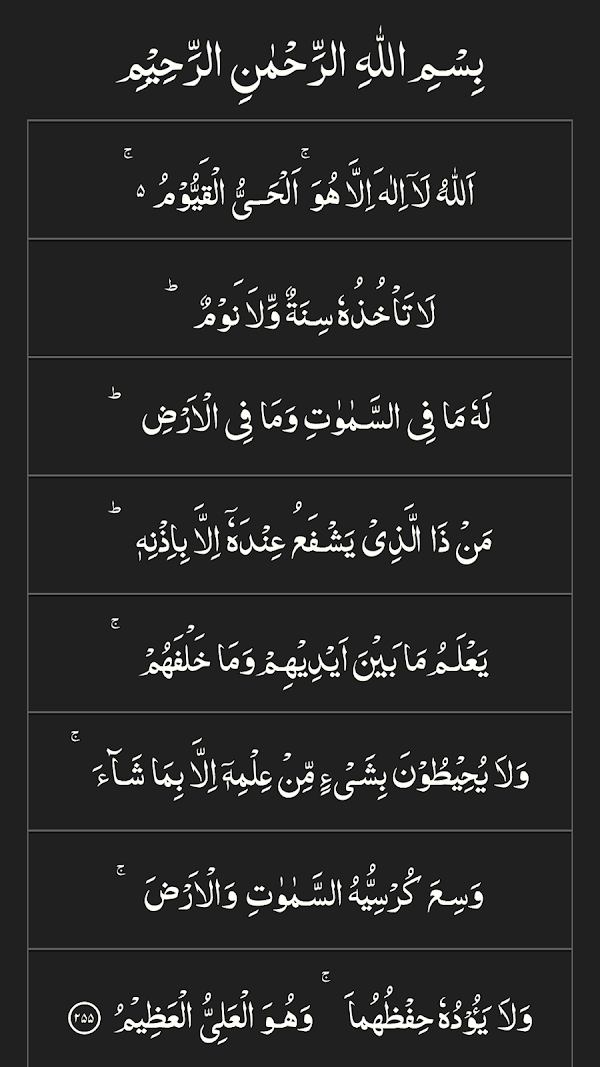 بِسْمِ اللّٰهِ الرَّحْمٰنِ الرَّحِيْمِ
اَللّٰهُ لَآ اِلٰهَ اِلَّا هُوَ ۚ اَلْحَـىُّ الْقَيُّوْمُ ۵ ۚ
لَا تَاْخُذُهٗ سِنَةٌ وَّلَا نَوْمٌ ؕ
لَهٗ مَا فِى السَّمٰوٰتِ وَمَا فِى الْاَرْضِ ؕ
مَنْ ذَا الَّذِىْ يَشْفَعُ عِنْدَهٗٓ اِلَّا بِاِذْنِهٖ ؕ
يَعْلَمُ مَا بَيْنَ اَيْدِيْهِمْ وَمَا خَلْفَهُمْ ۚ
وَلَا يُحِيْطُوْنَ بِشَىْءٍ مِّنْ عِلْمِهٖٓ اِلَّا بِمَا شَآءَ ۚ
وَسِعَ كُرْسِيُّهُ السَّمٰوٰتِ وَالْاَرْضَ ۚ
وَلَا يَؤُدُهٗ حِفْظُهُمَا ۚ وَهُوَ الْعَلِىُّ الْعَظِيْمُ ۲۵۵